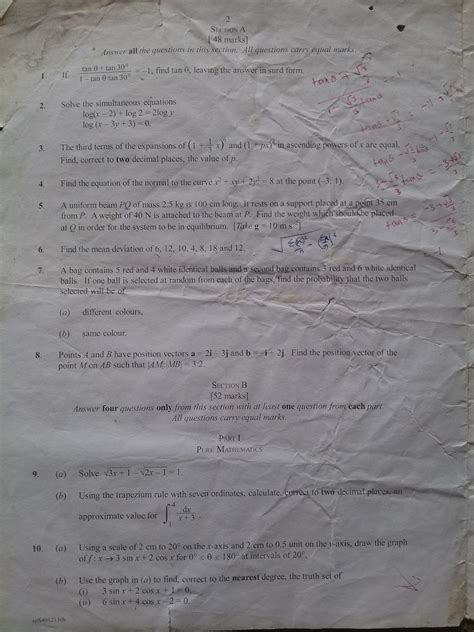 2
SECTION A
[48 marks]
Answer all the questions in this section. All questions carry equal marks.
1. If (tan θ + tan 30°)/(1 − tan θ tan 30°) = −1, find tan θ, leaving the answer in surd form.
2. Solve the simultaneous equations
log(x − 2) + log 2 = 2log y
log (x − 3y + 3) = 0.
3. The third terms of the expansions of and in ascending powers of x are equal.
Find, correct to two decimal places, the value of p.
4. Find the equation of the normal to the curve x² + xy + 2y² = 8 at the point (−3, 1).
5. A uniform beam PQ of mass 2.5 kg is 100 cm long. It rests on a support placed at a point 35 cm
from P. A weight of 40 N is attached to the beam at P. Find the weight which should be placed
at Q in order for the system to be in equilibrium. [Take g = 10 m s⁻²]
6. Find the mean deviation of 6, 12, 10, 4, 8, 18 and 12.
7. A bag contains 5 red and 4 white identical balls and a second bag contains 3 red and 6 white identical
balls. If one ball is selected at random from each of the bags, find the probability that the two balls
selected will be of
(a) different colours,
(b) same colour.
8. Points A and B have position vectors a = 2i − 3j and b = −i + 2j. Find the position vector of the
point M on AB such that |AM|:|MB| = 3:2.
SECTION B
[52 marks]
Answer four questions only from this section with at least one question from each part.
All questions carry equal marks.
PART I
PURE MATHEMATICS
9. (a) Solve √3x + 1 − √2x − 1 = 1.
(b) Using the trapezium rule with seven ordinates, calculate, correct to two decimal places, an
approximate value for ∫₁⁴ dx/(x + 3).
10. (a) Using a scale of 2 cm to 20° on the x-axis and 2 cm to 0.5 unit on the y-axis, draw the graph
of f : x → 3 sin x + 2 cos x for 0° ≤ θ ≤ 180° at intervals of 20°.
(b) Use the graph in (a) to find, correct to the nearest degree, the truth set of
(i) 3 sin x + 2 cos x + 1 = 0,
(ii) 6 sin x + 4 cos x − 2 = 0.